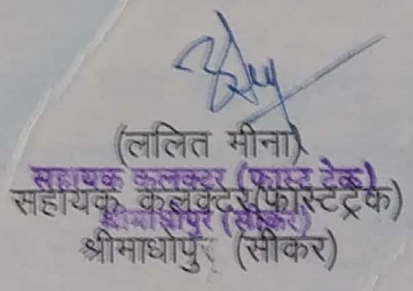 (ललित मीना)
सहायक कलक्टर (फास्ट ट्रेक)
सहायक कलक्टर(फास्टट्रेक)
श्रीमाधोपुर (सीकर)
श्रीमाधोपुर (सीकर)